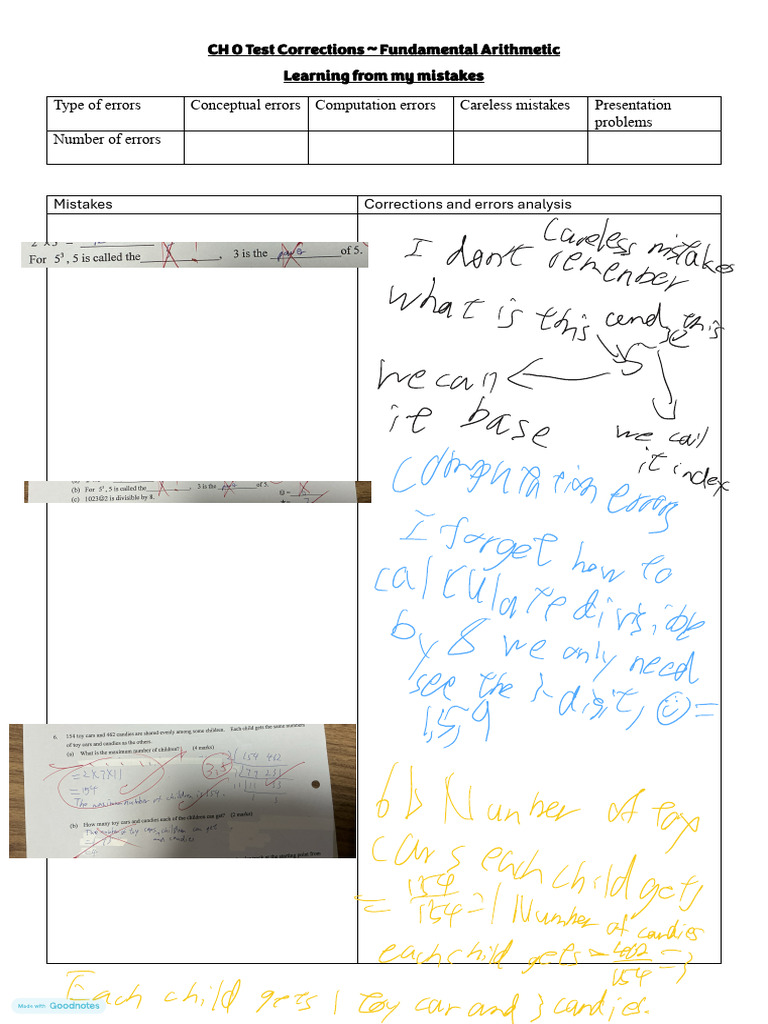 CH 0 Test Corrections ~ Fundamental Arithmetic
Learning from my mistakes
Type of errors Conceptual errors Computation errors Careless mistakes Presentation problems
Number of errors
Mistakes Corrections and errors analysis
For 5³, 5 is called the , 3 is the power of 5.
careless mistakes
I don't remember
what is this and this
5 3
we call it base
we call it index
(b) For 5³, 5 is called the , 3 is the of 5.
(c) 1023☺2 is divisible by 8.
computation error
I forget how to
calculate divisible
by 8 we only need
see the 3-digit, ☺=
1,5,9
6. 154 toy cars and 462 candies are shared evenly among some children. Each child gets the same numbers
of toy cars and candies as the others.
(a) What is the maximum number of children? (4 marks)
2 154 462
7 77 231
11 11 33
1 3
=2x7x11
=154
The maximum number of children is 154.
(b) How many toy cars and candies each of the children can get? (2 marks)
The number of toy cars children can get
and candies
6b Number of toy
cars each child gets
= 154/154 = 1 Number of candies
each child gets = 462/154 = 3
Each child gets 1 toy car and 3 candies.
Made with Goodnotes